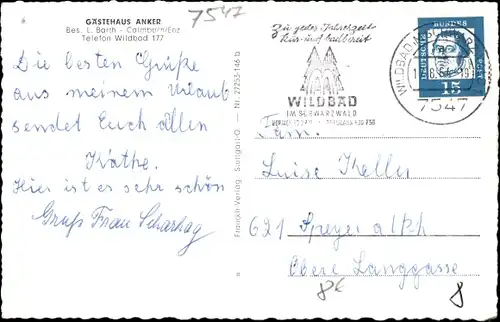 7547
GÄSTEHAUS ANKER
Bes. L. Barth - Calmbach/Enz
Telefon Wildbad 177
Die besten Grüße
aus meinem Urlaub
sendet Euch Allen
Käthe.
Hier ist es sehr schön
Gruß Frau Scharhag
Nr. 27235-146 b
Franckh-Verlag Stuttgart-O
Zu jeder Jahreszeit
Kur- und badbereit
WILDBAD
IM SCHWARZWALD
WILDBAD
7547
DEUTSCHE BUNDESPOST
15
Fam.
Luise Keller
621 Speyer a/Rh
Obere Langgasse
8€
8